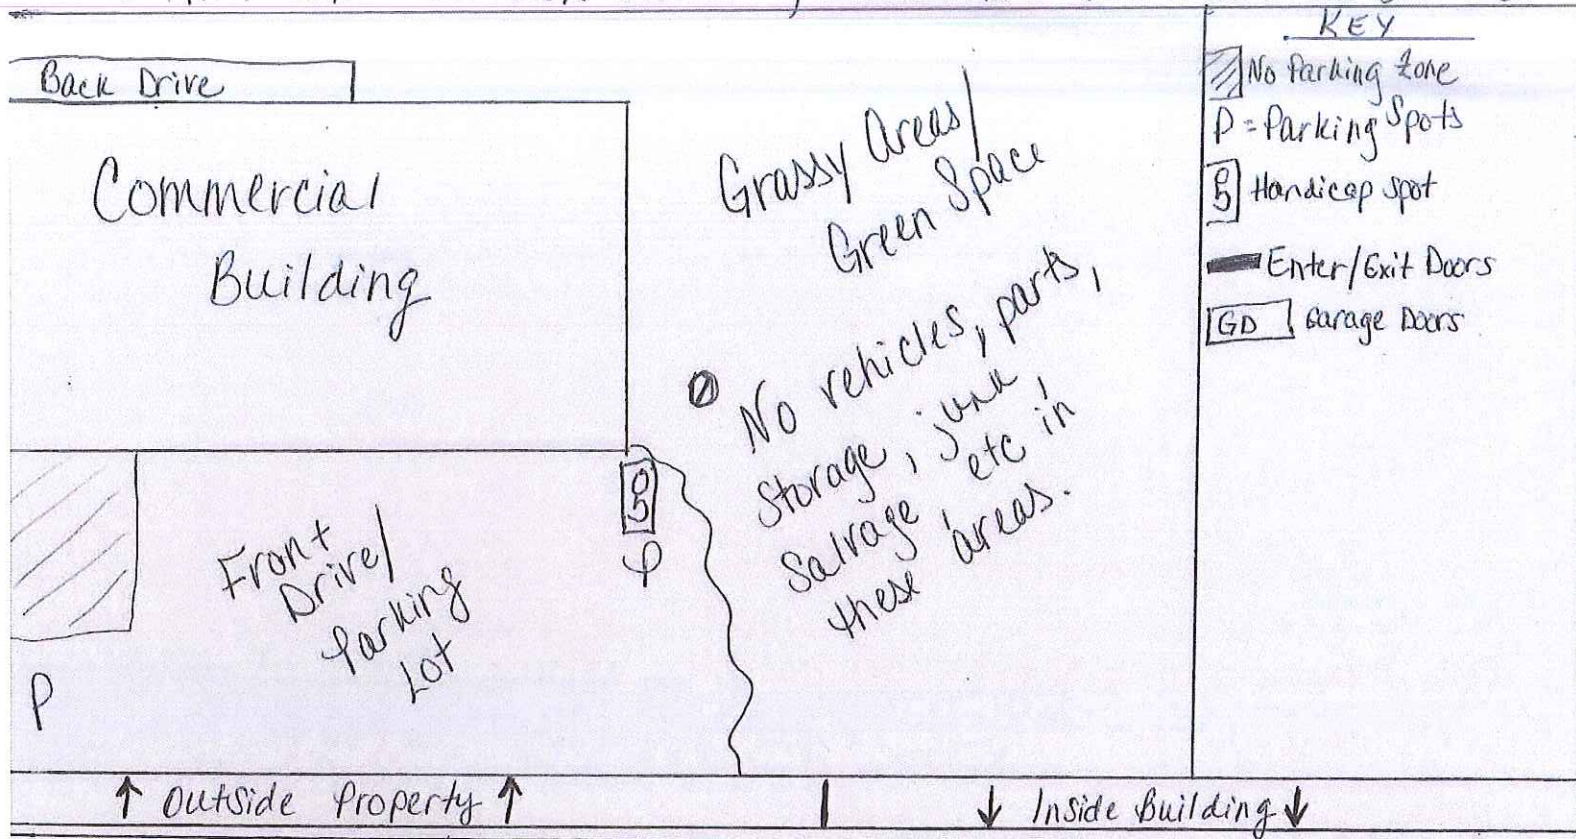 KEY
Back Drive
Commercial
Building
Grassy Areas/
Green Space
No vehicles, parts,
storage, junk,
salvage etc in
these areas.
Front
Drive/
Parking
Lot
P
P
No Parking Zone
P = Parking Spots
Handicap Spot
Enter/Exit Doors
GD Garage Doors
↑ Outside Property ↑ | ↓ Inside Building ↓